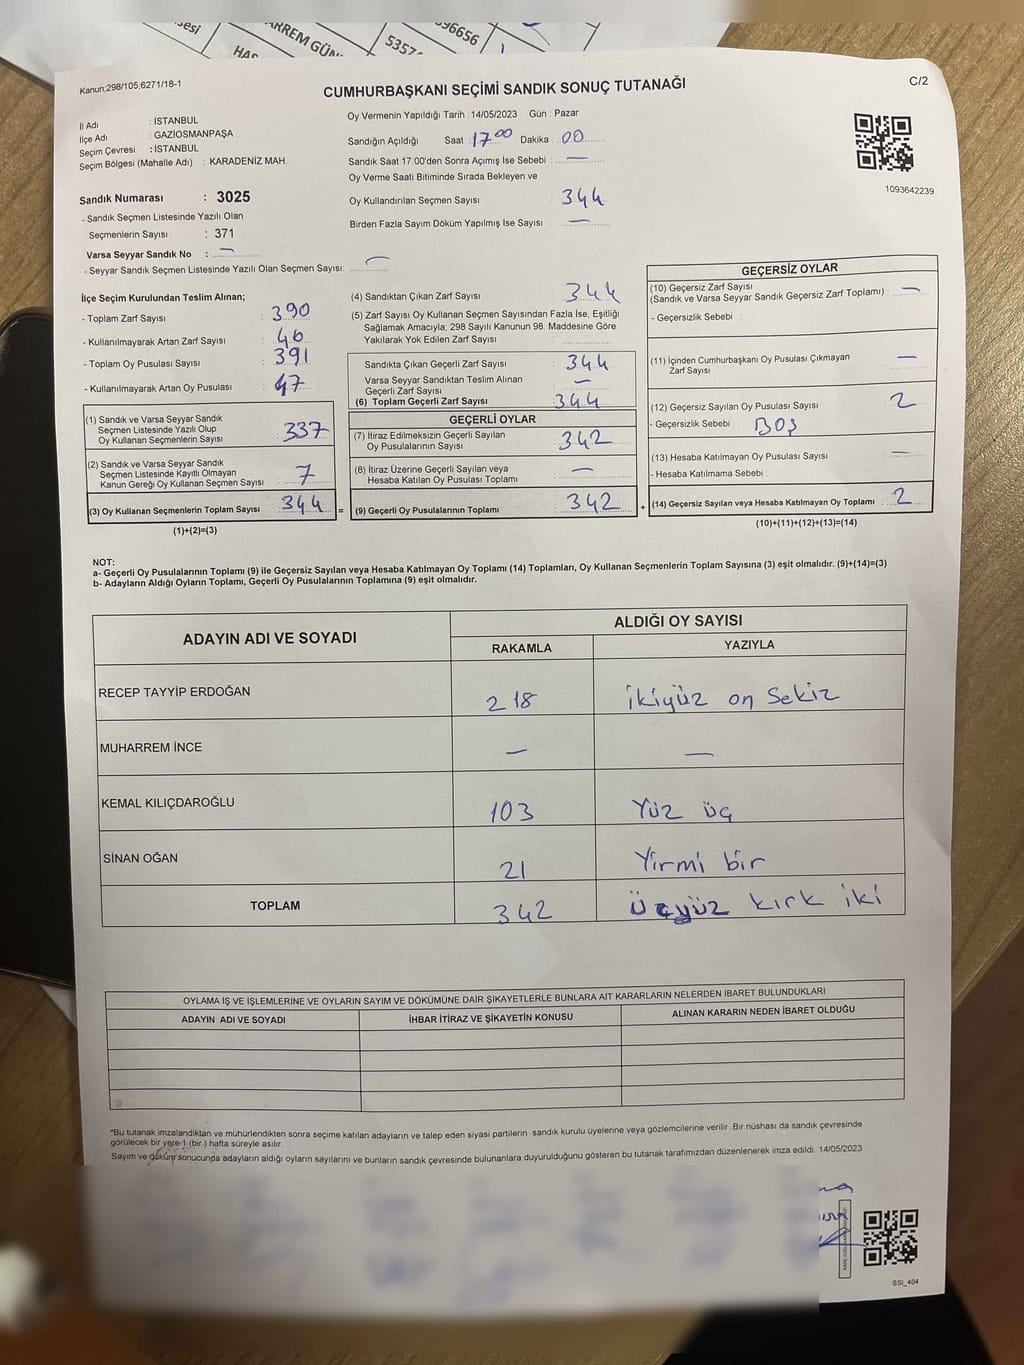 ARREM GÜN
5357
96656
Kanun,298/105;6271/18-1
CUMHURBAŞKANI SEÇİMİ SANDIK SONUÇ TUTANAĞI
C/2
İl Adı : İSTANBUL
İlçe Adı : GAZİOSMANPAŞA
Seçim Çevresi : İSTANBUL
Seçim Bölgesi (Mahalle Adı) : KARADENİZ MAH.
Oy Vermenin Yapıldığı Tarih : 14/05/2023 Gün : Pazar
Sandığın Açıldığı Saat : 17 00 Dakika : 00
Sandık Saat 17:00'den Sonra Açımış İse Sebebi : —
Oy Verme Saati Bitiminde Sırada Bekleyen ve
Oy Kullandırılan Seçmen Sayısı : 344
Birden Fazla Sayım Döküm Yapılmış İse Sayısı : —
1093642239
Sandık Numarası : 3025
- Sandık Seçmen Listesinde Yazılı Olan
Seçmenlerin Sayısı : 371
Varsa Seyyar Sandık No : —
- Seyyar Sandık Seçmen Listesinde Yazılı Olan Seçmen Sayısı: —
İlçe Seçim Kurulundan Teslim Alınan;
- Toplam Zarf Sayısı : 390
- Kullanılmayarak Artan Zarf Sayısı : 46
- Toplam Oy Pusulası Sayısı : 391
- Kullanılmayarak Artan Oy Pusulası : 47
(1) Sandık ve Varsa Seyyar Sandık
Seçmen Listesinde Yazılı Olup
Oy Kullanan Seçmenlerin Sayısı : 337
(2) Sandık ve Varsa Seyyar Sandık
Seçmen Listesinde Kayıtlı Olmayan
Kanun Gereği Oy Kullanan Seçmen Sayısı : 7
(3) Oy Kullanan Seçmenlerin Toplam Sayısı : 344 =
(1)+(2)=(3)
(4) Sandıktan Çıkan Zarf Sayısı : 344
(5) Zarf Sayısı Oy Kullanan Seçmen Sayısından Fazla İse, Eşitliği
Sağlamak Amacıyla; 298 Sayılı Kanunun 98. Maddesine Göre
Yakılarak Yok Edilen Zarf Sayısı :
Sandıkta Çıkan Geçerli Zarf Sayısı : 344
Varsa Seyyar Sandıktan Teslim Alınan
Geçerli Zarf Sayısı : —
(6) Toplam Geçerli Zarf Sayısı : 344
GEÇERLİ OYLAR
(7) İtiraz Edilmeksizin Geçerli Sayılan
Oy Pusulalarının Sayısı : 342
(8) İtiraz Üzerine Geçerli Sayılan veya
Hesaba Katılan Oy Pusulası Toplamı : —
(9) Geçerli Oy Pusulalarının Toplamı : 342 +
GEÇERSİZ OYLAR
(10) Geçersiz Zarf Sayısı
(Sandık ve Varsa Seyyar Sandık Geçersiz Zarf Toplamı) : —
- Geçersizlik Sebebi :
(11) İçinden Cumhurbaşkanı Oy Pusulası Çıkmayan
Zarf Sayısı : —
(12) Geçersiz Sayılan Oy Pusulası Sayısı : 2
- Geçersizlik Sebebi : BOŞ
(13) Hesaba Katılmayan Oy Pusulası Sayısı : —
- Hesaba Katılmama Sebebi :
(14) Geçersiz Sayılan veya Hesaba Katılmayan Oy Toplamı : 2
(10)+(11)+(12)+(13)=(14)
NOT:
a- Geçerli Oy Pusulalarının Toplamı (9) ile Geçersiz Sayılan veya Hesaba Katılmayan Oy Toplamı (14) Toplamları, Oy Kullanan Seçmenlerin Toplam Sayısına (3) eşit olmalıdır. (9)+(14)=(3)
b- Adayların Aldığı Oyların Toplamı, Geçerli Oy Pusulalarının Toplamına (9) eşit olmalıdır.
ADAYIN ADI VE SOYADI ALDIĞI OY SAYISI
RAKAMLA YAZIYLA
RECEP TAYYİP ERDOĞAN 218 ikiyüz on sekiz
MUHARREM İNCE — —
KEMAL KILIÇDAROĞLU 103 Yüz üç
SİNAN OĞAN 21 Yirmi bir
TOPLAM 342 Üçyüz kırk iki
OYLAMA İŞ VE İŞLEMLERİNE VE OYLARIN SAYIM VE DÖKÜMÜNE DAİR ŞİKAYETLERLE BUNLARA AİT KARARLARIN NELERDEN İBARET BULUNDUKLARI
ADAYIN ADI VE SOYADI İHBAR İTİRAZ VE ŞİKAYETİN KONUSU ALINAN KARARIN NEDEN İBARET OLDUĞU
*Bu tutanak imzalandıktan ve mühürlendikten sonra seçime katılan adayların ve talep eden siyasi partilerin sandık kurulu üyelerine veya gözlemcilerine verilir. Bir nüshası da sandık çevresinde
görülecek bir yere 1 (bir) hafta süreyle asılır.
Sayım ve döküm sonucunda adayların aldığı oyların sayılarını ve bunların sandık çevresinde bulunanlara duyurulduğunu gösteren bu tutanak tarafımızdan düzenlenerek imza edildi. 14/05/2023
SSI_404